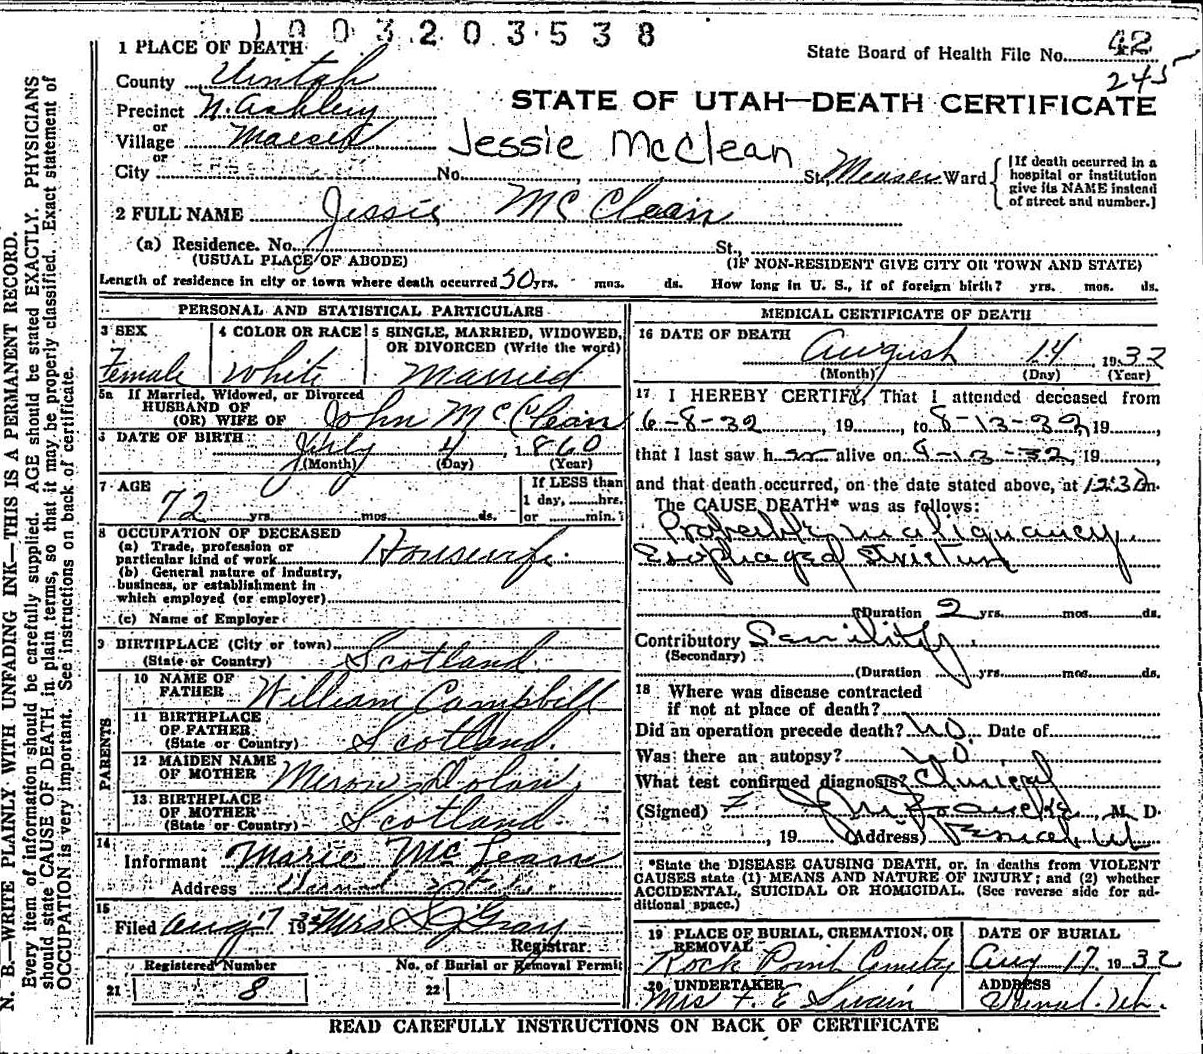 1003203538
1 PLACE OF DEATH
State Board of Health File No. 42
245
County Uintah
Precinct N. Ashley
or
Village Maeser
or
City
STATE OF UTAH—DEATH CERTIFICATE
Jessie McClean
No. St. Ward
[If death occurred in a
hospital or institution
give its NAME instead
of street and number.]
2 FULL NAME Jessie McClean
(a) Residence. No. St.,
(USUAL PLACE OF ABODE) (IF NON-RESIDENT GIVE CITY OR TOWN AND STATE)
Length of residence in city or town where death occurred 50 yrs. mos. ds. How long in U. S., if of foreign birth? yrs. mos. ds.
PERSONAL AND STATISTICAL PARTICULARS
3 SEX
Female
4 COLOR OR RACE
White
5 SINGLE, MARRIED, WIDOWED,
OR DIVORCED (Write the word)
Married
5a If Married, Widowed, or Divorced
HUSBAND OF
(OR) WIFE OF John McClean
6 DATE OF BIRTH July 4, 1860
(Month) (Day) (Year)
7 AGE
72 yrs. mos. ds.
If LESS than
1 day, hrs.
or min.
8 OCCUPATION OF DECEASED
(a) Trade, profession or
particular kind of work Housewife
(b) General nature of industry,
business, or establishment in
which employed (or employer)
(c) Name of Employer
9 BIRTHPLACE (City or town)
(State or Country) Scotland
PARENTS
10 NAME OF
FATHER William Campbell
11 BIRTHPLACE
OF FATHER
(State or Country) Scotland.
12 MAIDEN NAME
OF MOTHER Dolan
13 BIRTHPLACE
OF MOTHER
(State or Country) Scotland
14
Informant Marie McLean
Address Vernal Utah.
15
Filed Aug 17 1932 Mrs Gray
Registrar.
Registered Number
21 8
No. of Burial or Removal Permit
22
MEDICAL CERTIFICATE OF DEATH
16 DATE OF DEATH
August 14 1932
(Month) (Day) (Year)
17 I HEREBY CERTIFY, That I attended deceased from
6-8-32, 19, to 8-13-32, 19,
that I last saw her alive on -13-32, 19,
and that death occurred, on the date stated above, at 12:30 m.
The CAUSE DEATH* was as follows:
Probably malignancy.
Esophageal Stricture
(Duration 2 yrs. mos. ds.
Contributory Senility.
(Secondary)
(Duration yrs. mos. ds.
18 Where was disease contracted
if not at place of death?
Did an operation precede death? No. Date of
Was there an autopsy? No.
What test confirmed diagnosis? Clinical
(Signed) M. D.
, 19 (Address)
*State the DISEASE CAUSING DEATH, or, in deaths from VIOLENT
CAUSES state (1) MEANS AND NATURE OF INJURY; and (2) whether
ACCIDENTAL, SUICIDAL OR HOMICIDAL. (See reverse side for ad-
ditional space.)
19 PLACE OF BURIAL, CREMATION, OR
REMOVAL
Rock Point
DATE OF BURIAL
Aug 17 1932
20 UNDERTAKER
Mrs F. E Swain
ADDRESS
Vernal. Ut.
READ CAREFULLY INSTRUCTIONS ON BACK OF CERTIFICATE
N. B.—WRITE PLAINLY WITH UNFADING INK—THIS IS A PERMANENT RECORD.
Every item of information should be carefully supplied. AGE should be stated EXACTLY. PHYSICIANS
should state CAUSE OF DEATH in plain terms, so that it may be properly classified. Exact statement of
OCCUPATION is very important. See instructions on back of certificate.